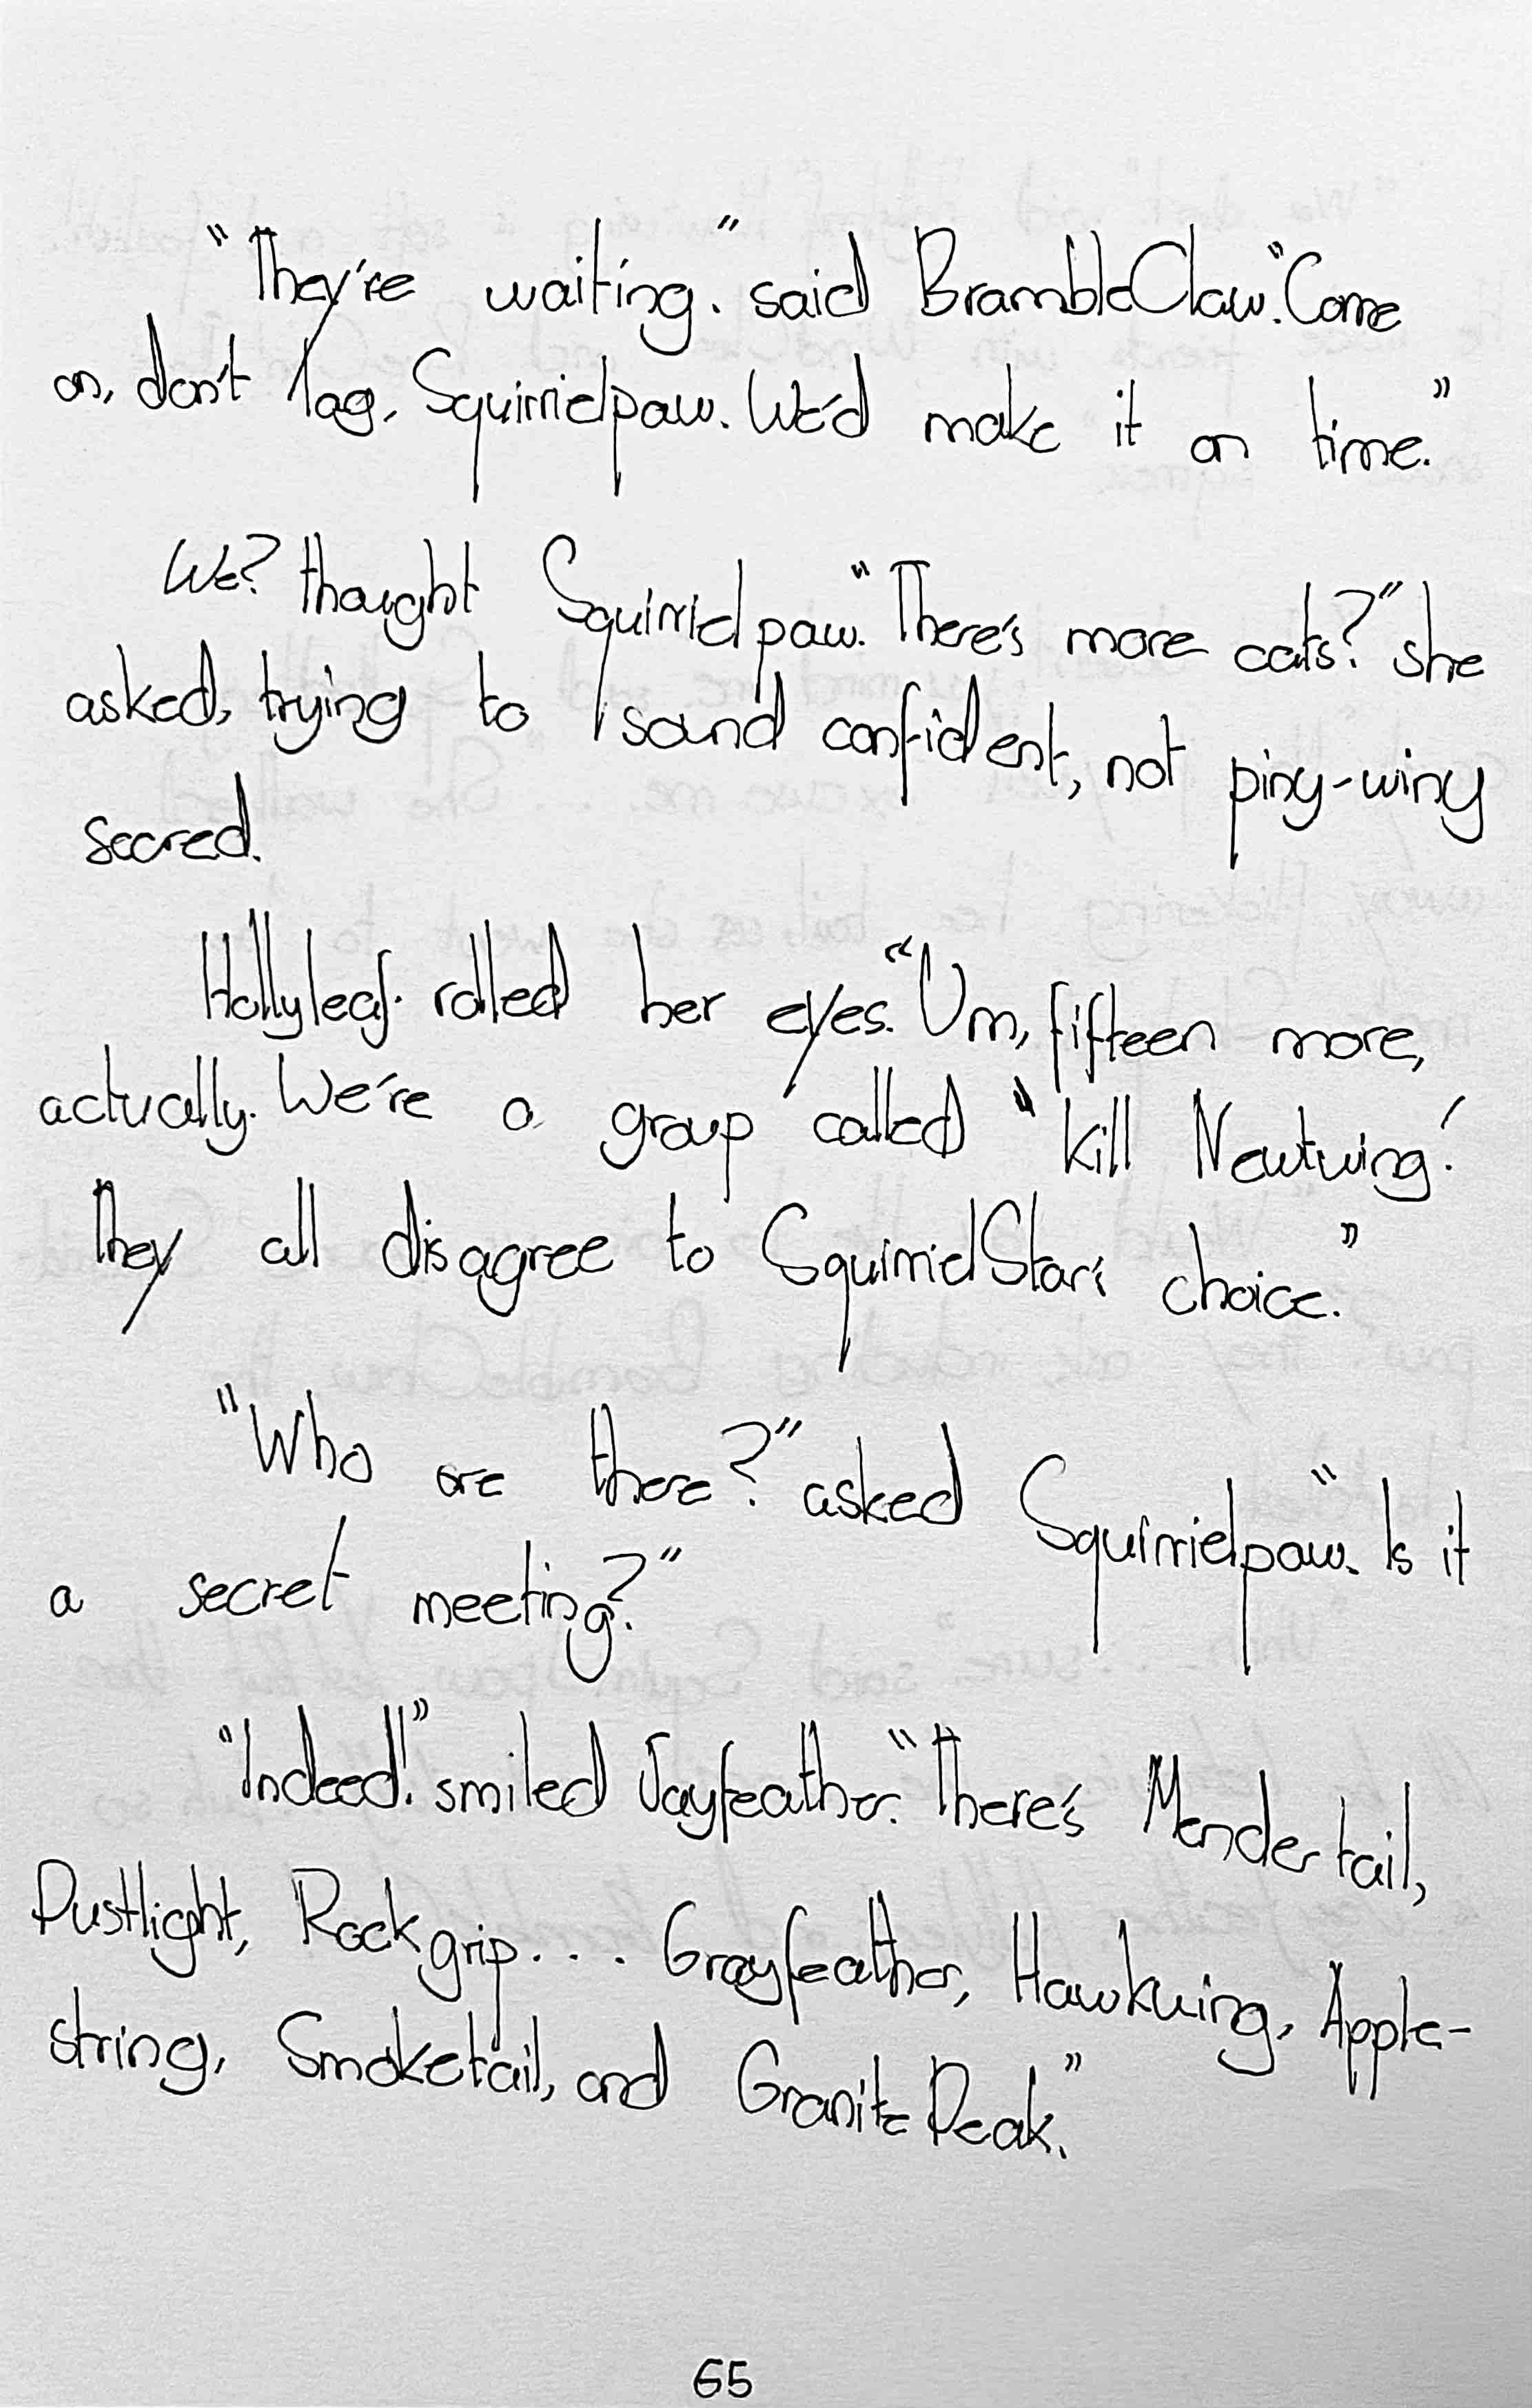 "They're waiting." said BrambleClaw. "Come
on, don't lag, Squirrielpaw. We'd make it on time."
We? thought Squirrielpaw. "There's more cats?" she
asked, trying to sound confident, not piny-winy
scared.
Hollyleaf rolled her eyes. "Um, fifteen more,
actually. We're a group called "kill Newtwing!
They all disagree to SquirrielStar's choice."
"Who are there?" asked Squirrielpaw. "Is it
a secret meeting?"
"Indeed!" smiled Jayfeather. "There's Mendertail,
Dustlight, Rockgrip.... Grayfeather, Hawkwing, Apple-
string, Smoketail, and GranitePeak."
65